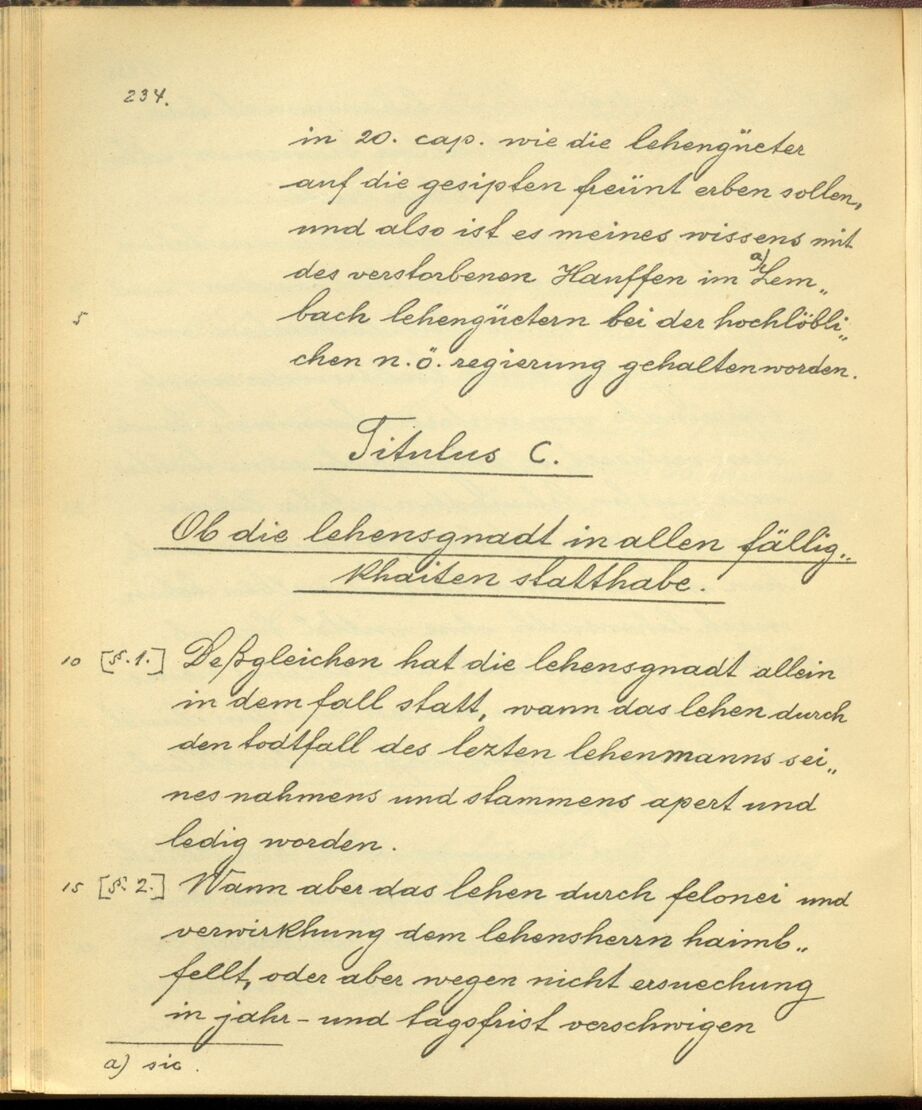 234.
in 20. cap. wie die lehengüeter
auf die gesipten freünt erben sollen,
und also ist es meines wissens mit
des verstorbenen Hauffen im a) Lem„
5 bach lehengüetern bei der hochlöbli„
chen n. ö. regierung gehalten worden.
Titulus C.
Ob die lehensgnadt in allen fällig„
khaiten statthabe.
10 [§. 1.] Deßgleichen hat die lehensgnadt allein
in dem fall statt, wann das lehen durch
den todtfall des lezten lehenmanns sei„
nes nahmens und stammens apert und
ledig worden.
15 [§. 2.] Wann aber das lehen durch felonei und
verwirkhung dem lehensherrn haimb„
fellt, oder aber wegen nicht ersuechung
in jahr- und tagsfrist verschwigen
a) sic.